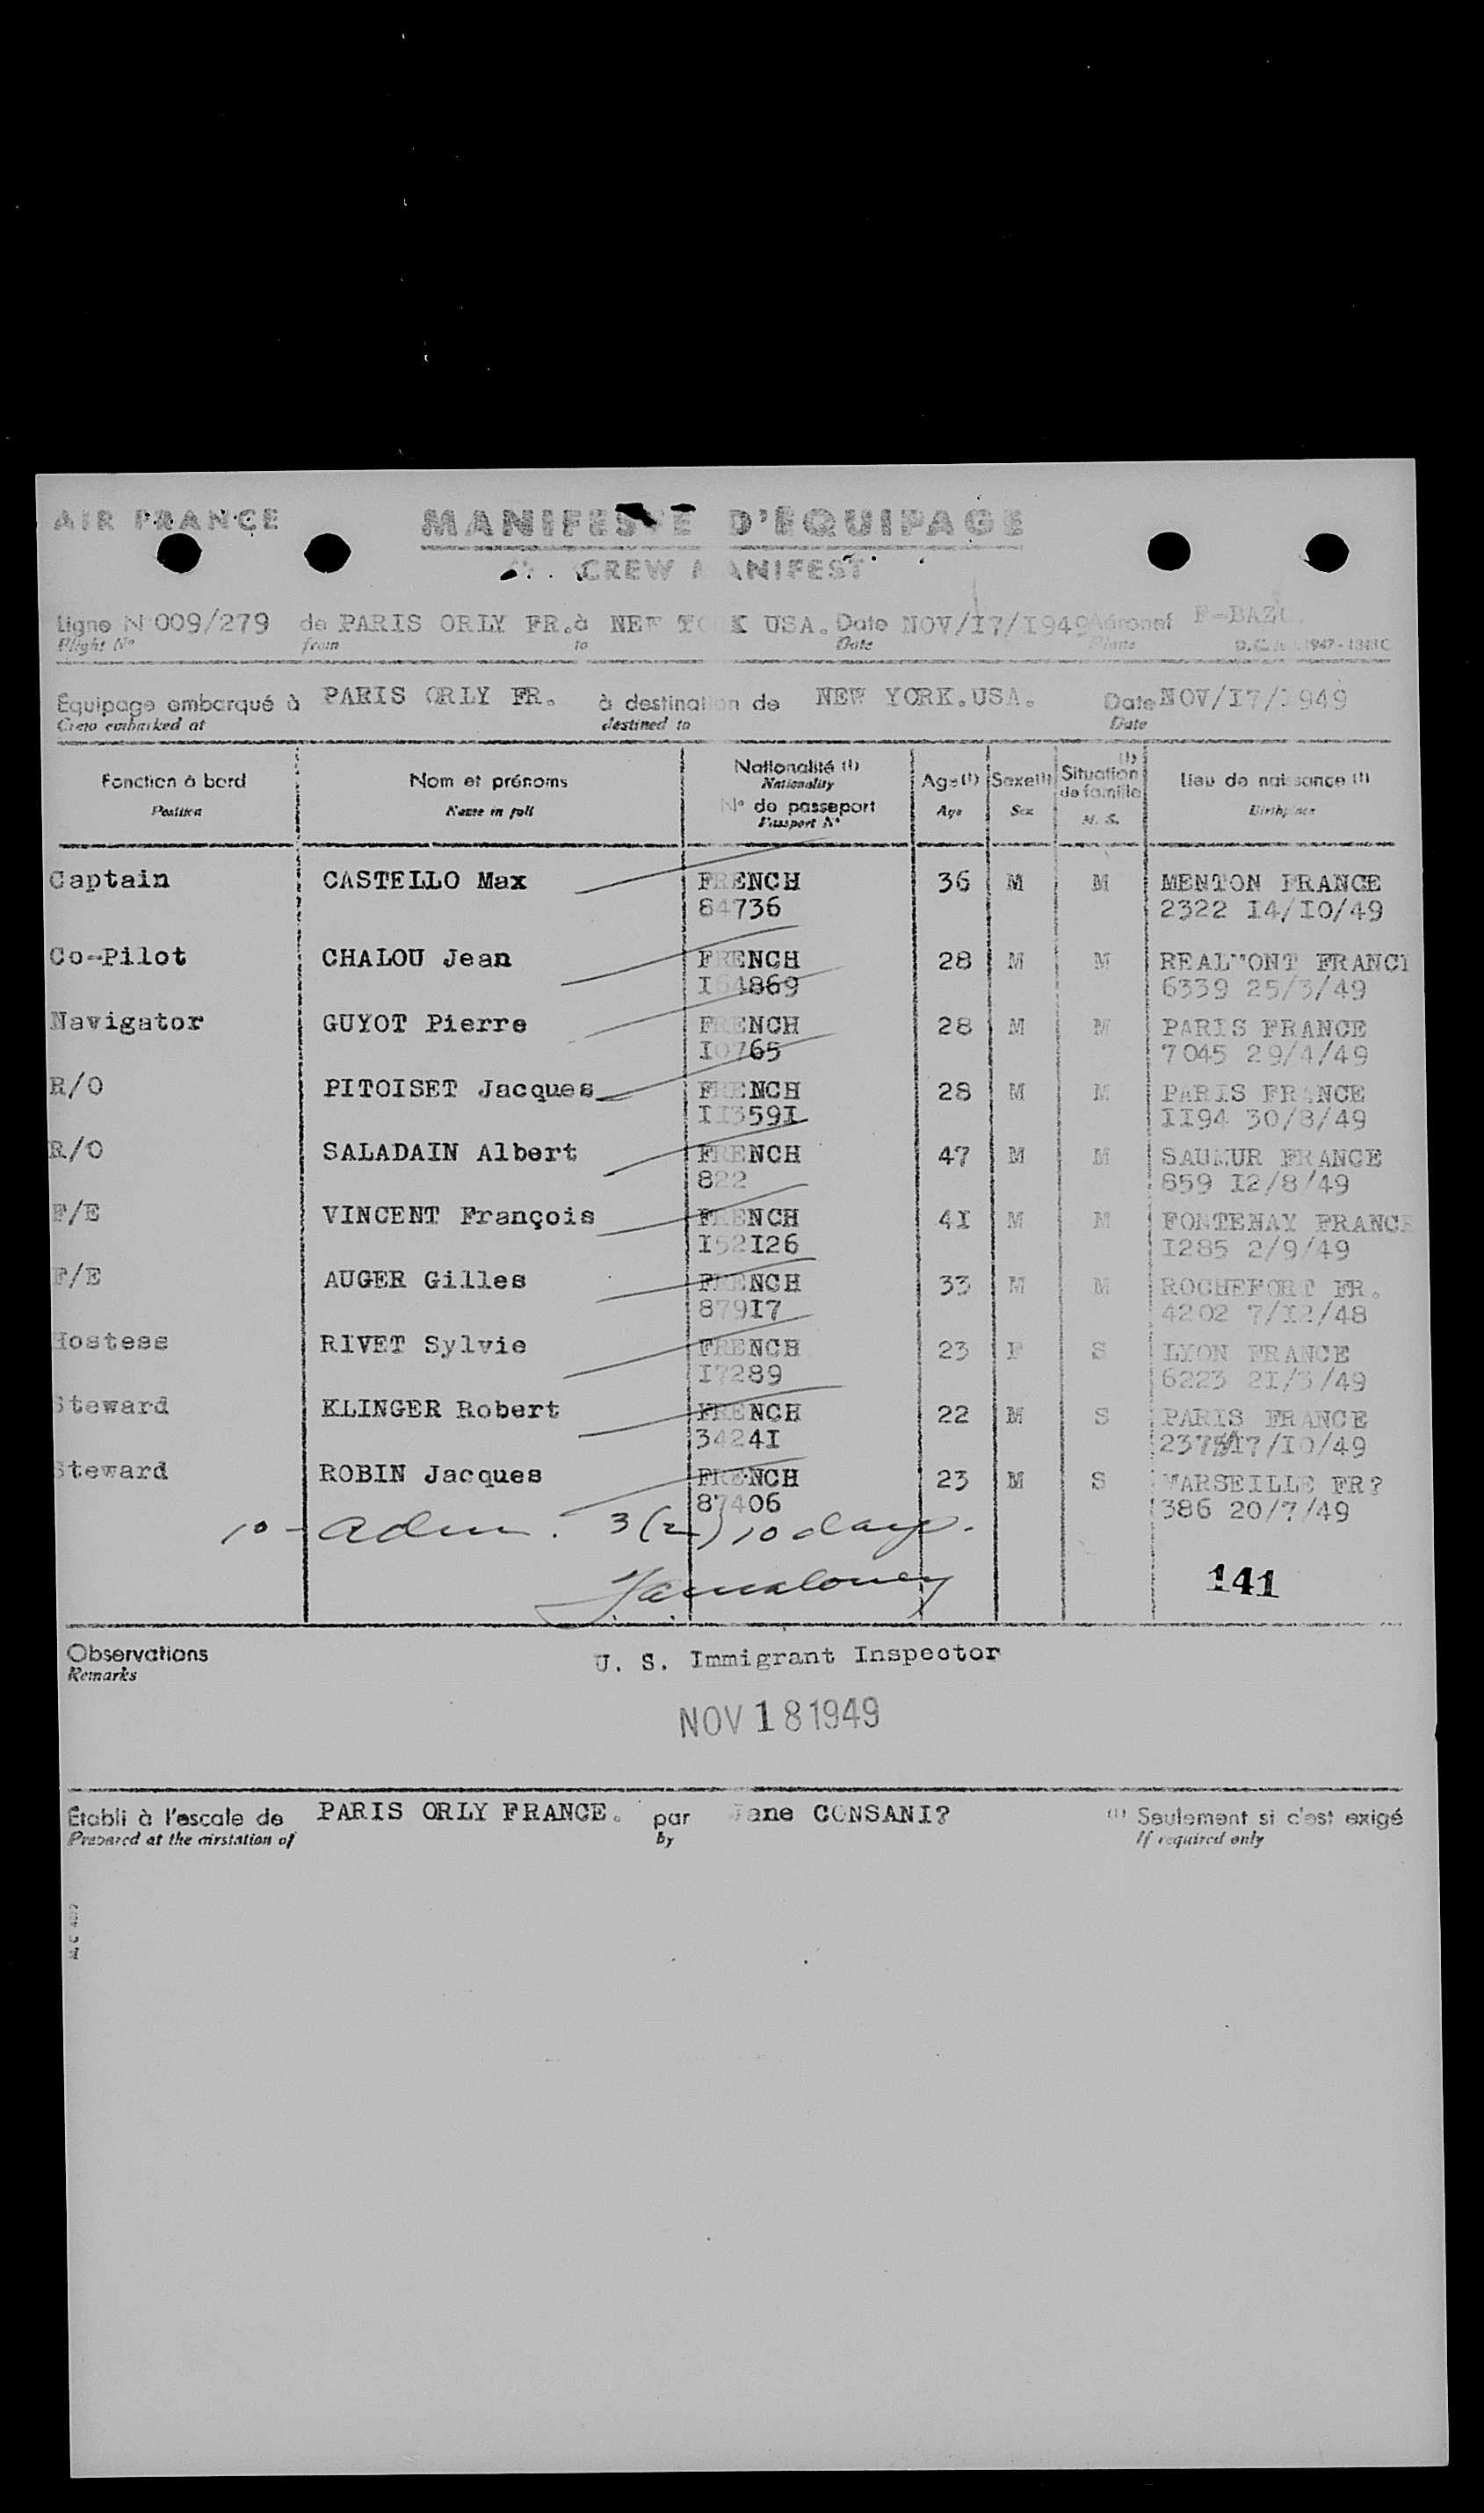 AIR FRANCE
MANIFESTE D'ÉQUIPAGE
CREW MANIFEST
Ligne N° 009/279 de PARIS ORLY FR. à NEW YORK USA. Date NOV/I7/I949 Aéronef
Flight N° from to Date Plane
Équipage embarqué à PARIS ORLY FR. à destination de NEW YORK.USA. Date NOV/I7/I949
Crew embarked at destined to Date
Fonction à bord Nom et prénoms Nationalité (1) Age (1) Sexe (1) Situation de famille (1) Lieu de naissance (1)
Position Name in full Nationality Age Sex M. S. Birthplace
N° de passeport
Passport N°
Captain CASTELLO Max FRENCH 36 M M MENTON FRANCE
84736 2322 I4/IO/49
Co-Pilot CHALOU Jean FRENCH 28 M M REALMONT FRANCE
I64869 6339 25/3/49
Navigator GUYOT Pierre FRENCH 28 M M PARIS FRANCE
I0765 7045 29/4/49
R/O PITOISET Jacques FRENCH 28 M M PARIS FRANCE
II359I II94 30/8/49
R/O SALADAIN Albert FRENCH 47 M M SAUMUR FRANCE
822 859 I2/8/49
F/E VINCENT François FRENCH 4I M M FONTENAY FRANCE
I52I26 I285 2/9/49
F/E AUGER Gilles FRENCH 33 M M ROCHEFORT FR.
879I7 4202 7/I2/48
Hostess RIVET Sylvie FRENCH 23 F S LYON FRANCE
I7289 6223 2I/3/49
Steward KLINGER Robert FRENCH 22 M S PARIS FRANCE
3424I I7/IO/49
Steward ROBIN Jacques FRENCH 23 M S MARSEILLE FR?
87406 386 20/7/49
10 - adm. 3(2) 10 days.
141
Observations
Remarks
U. S. Immigrant Inspector
NOV 18 1949
Établi à l'escale de PARIS ORLY FRANCE. par Jane CONSANI? (1) Seulement si c'est exigé
Prepared at the airstation of by If required only